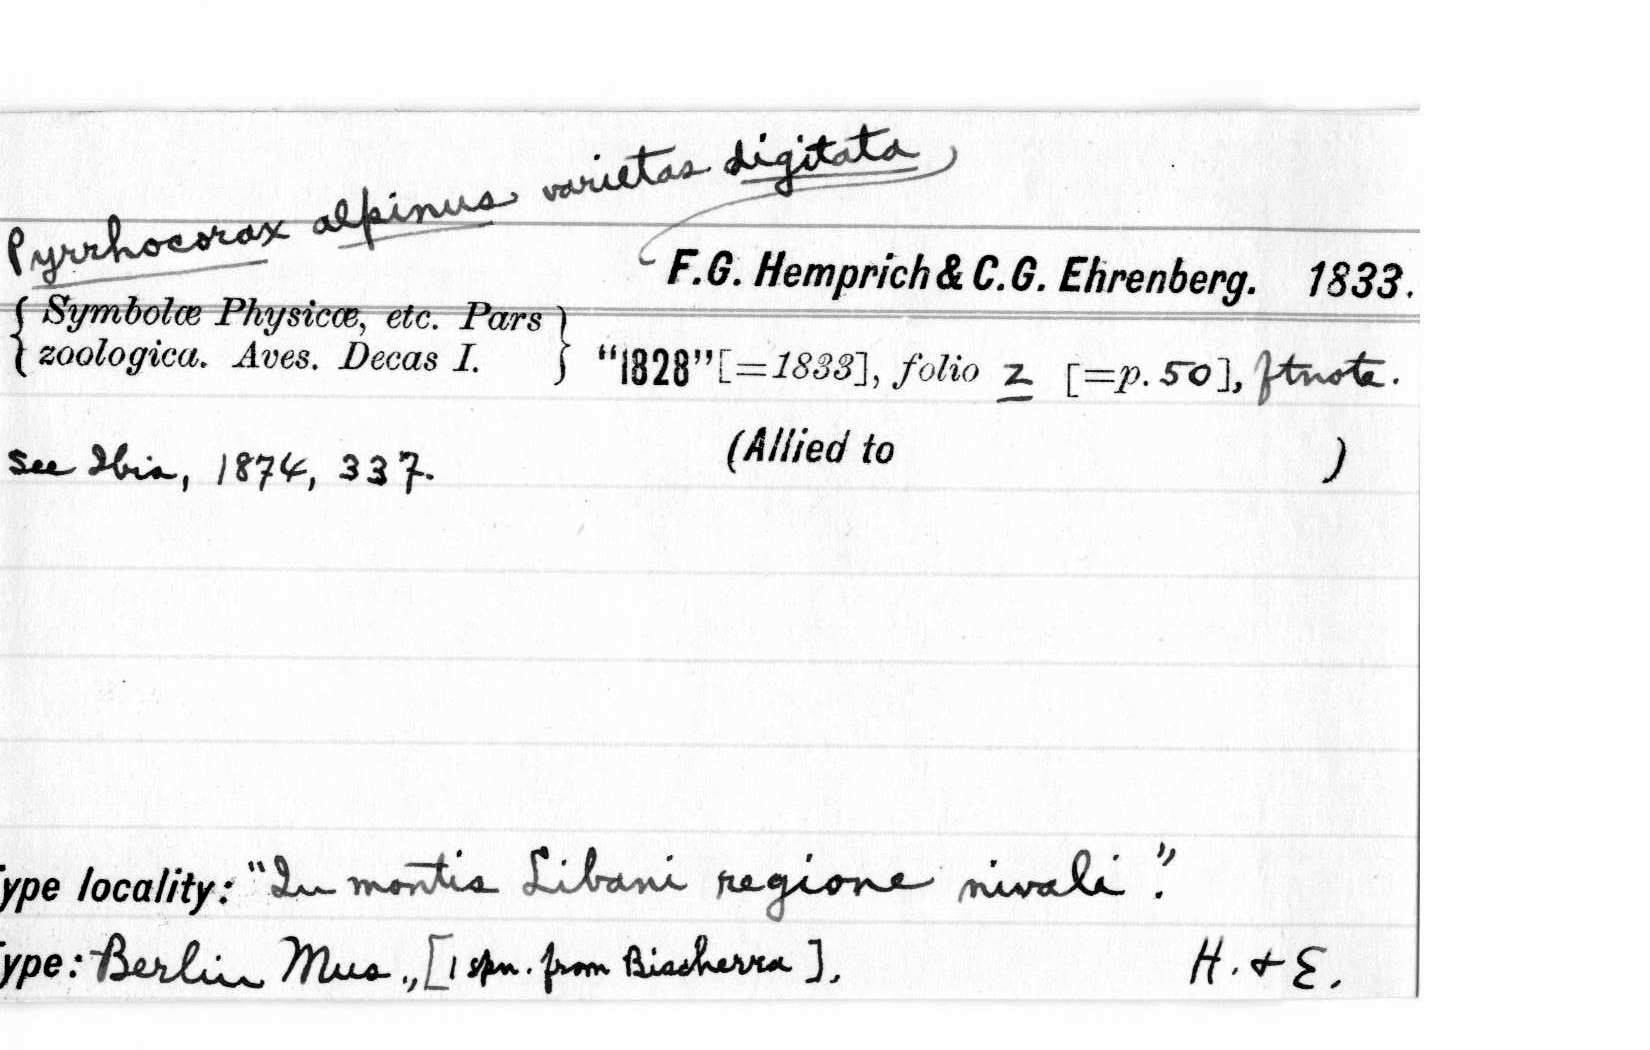 Pyrrhocorax alpinus varietas digitata
F.G. Hemprich & C.G. Ehrenberg. 1833.
{ Symbolæ Physicæ, etc. Pars
zoologica. Aves. Decas I. } "1828" [=1833], folio z [=p. 50], ftnote.
See Ibis, 1874, 337. (Allied to )
ype locality: "In montis Libani regione nivali".
ype: Berlin Mus., [1 spn. from Bischerra]. H. & E.